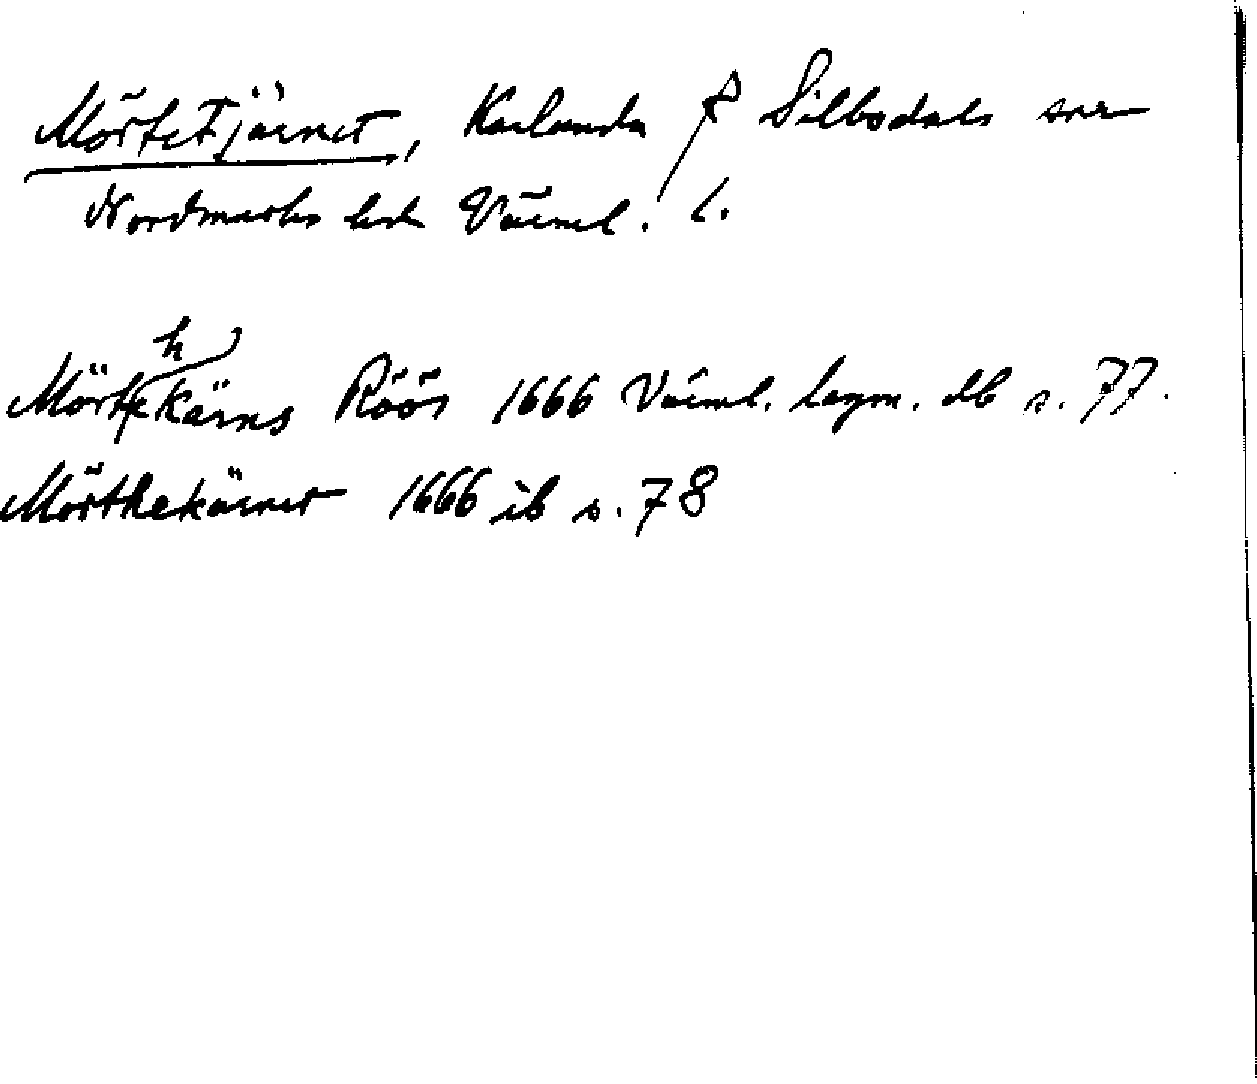 Mörtetjärnet, Karlanda & Silbodals snr
Nordmarks hd Värml. l.
Mörthekärns Röös 1666 Värml. lagm. db s. 77.
Mörthekärnet 1666 ib s. 78